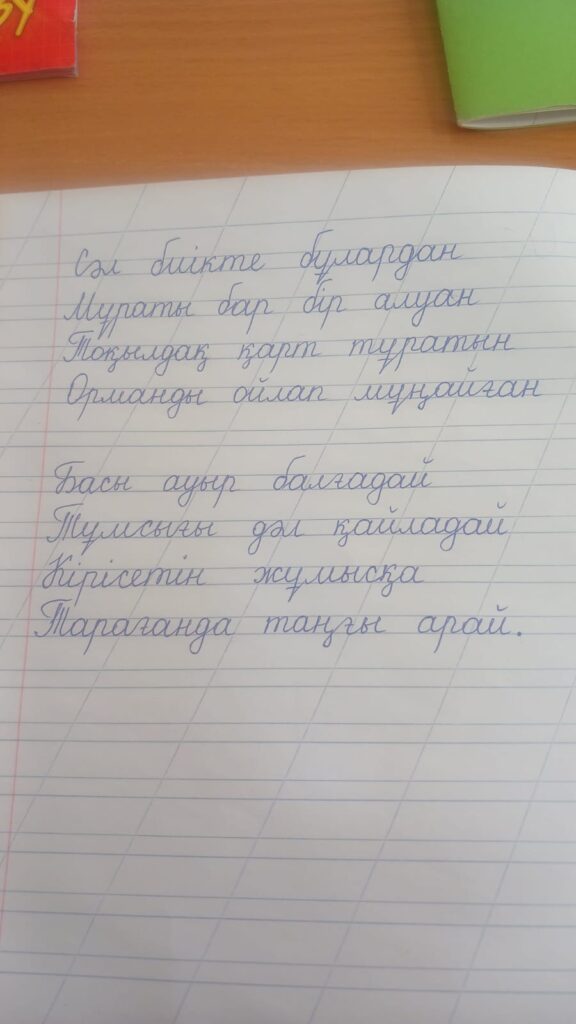 ЗУ
Сәл биікте бұлардан
Мұраты бар бір алуан
Тоқылдақ қарт тұратын
Орманды ойлап мұңайған
Басы ауыр балғадай
Тұмсығы дәл қайладай
Кірісетін жұмысқа
Тарағанда таңғы арай.